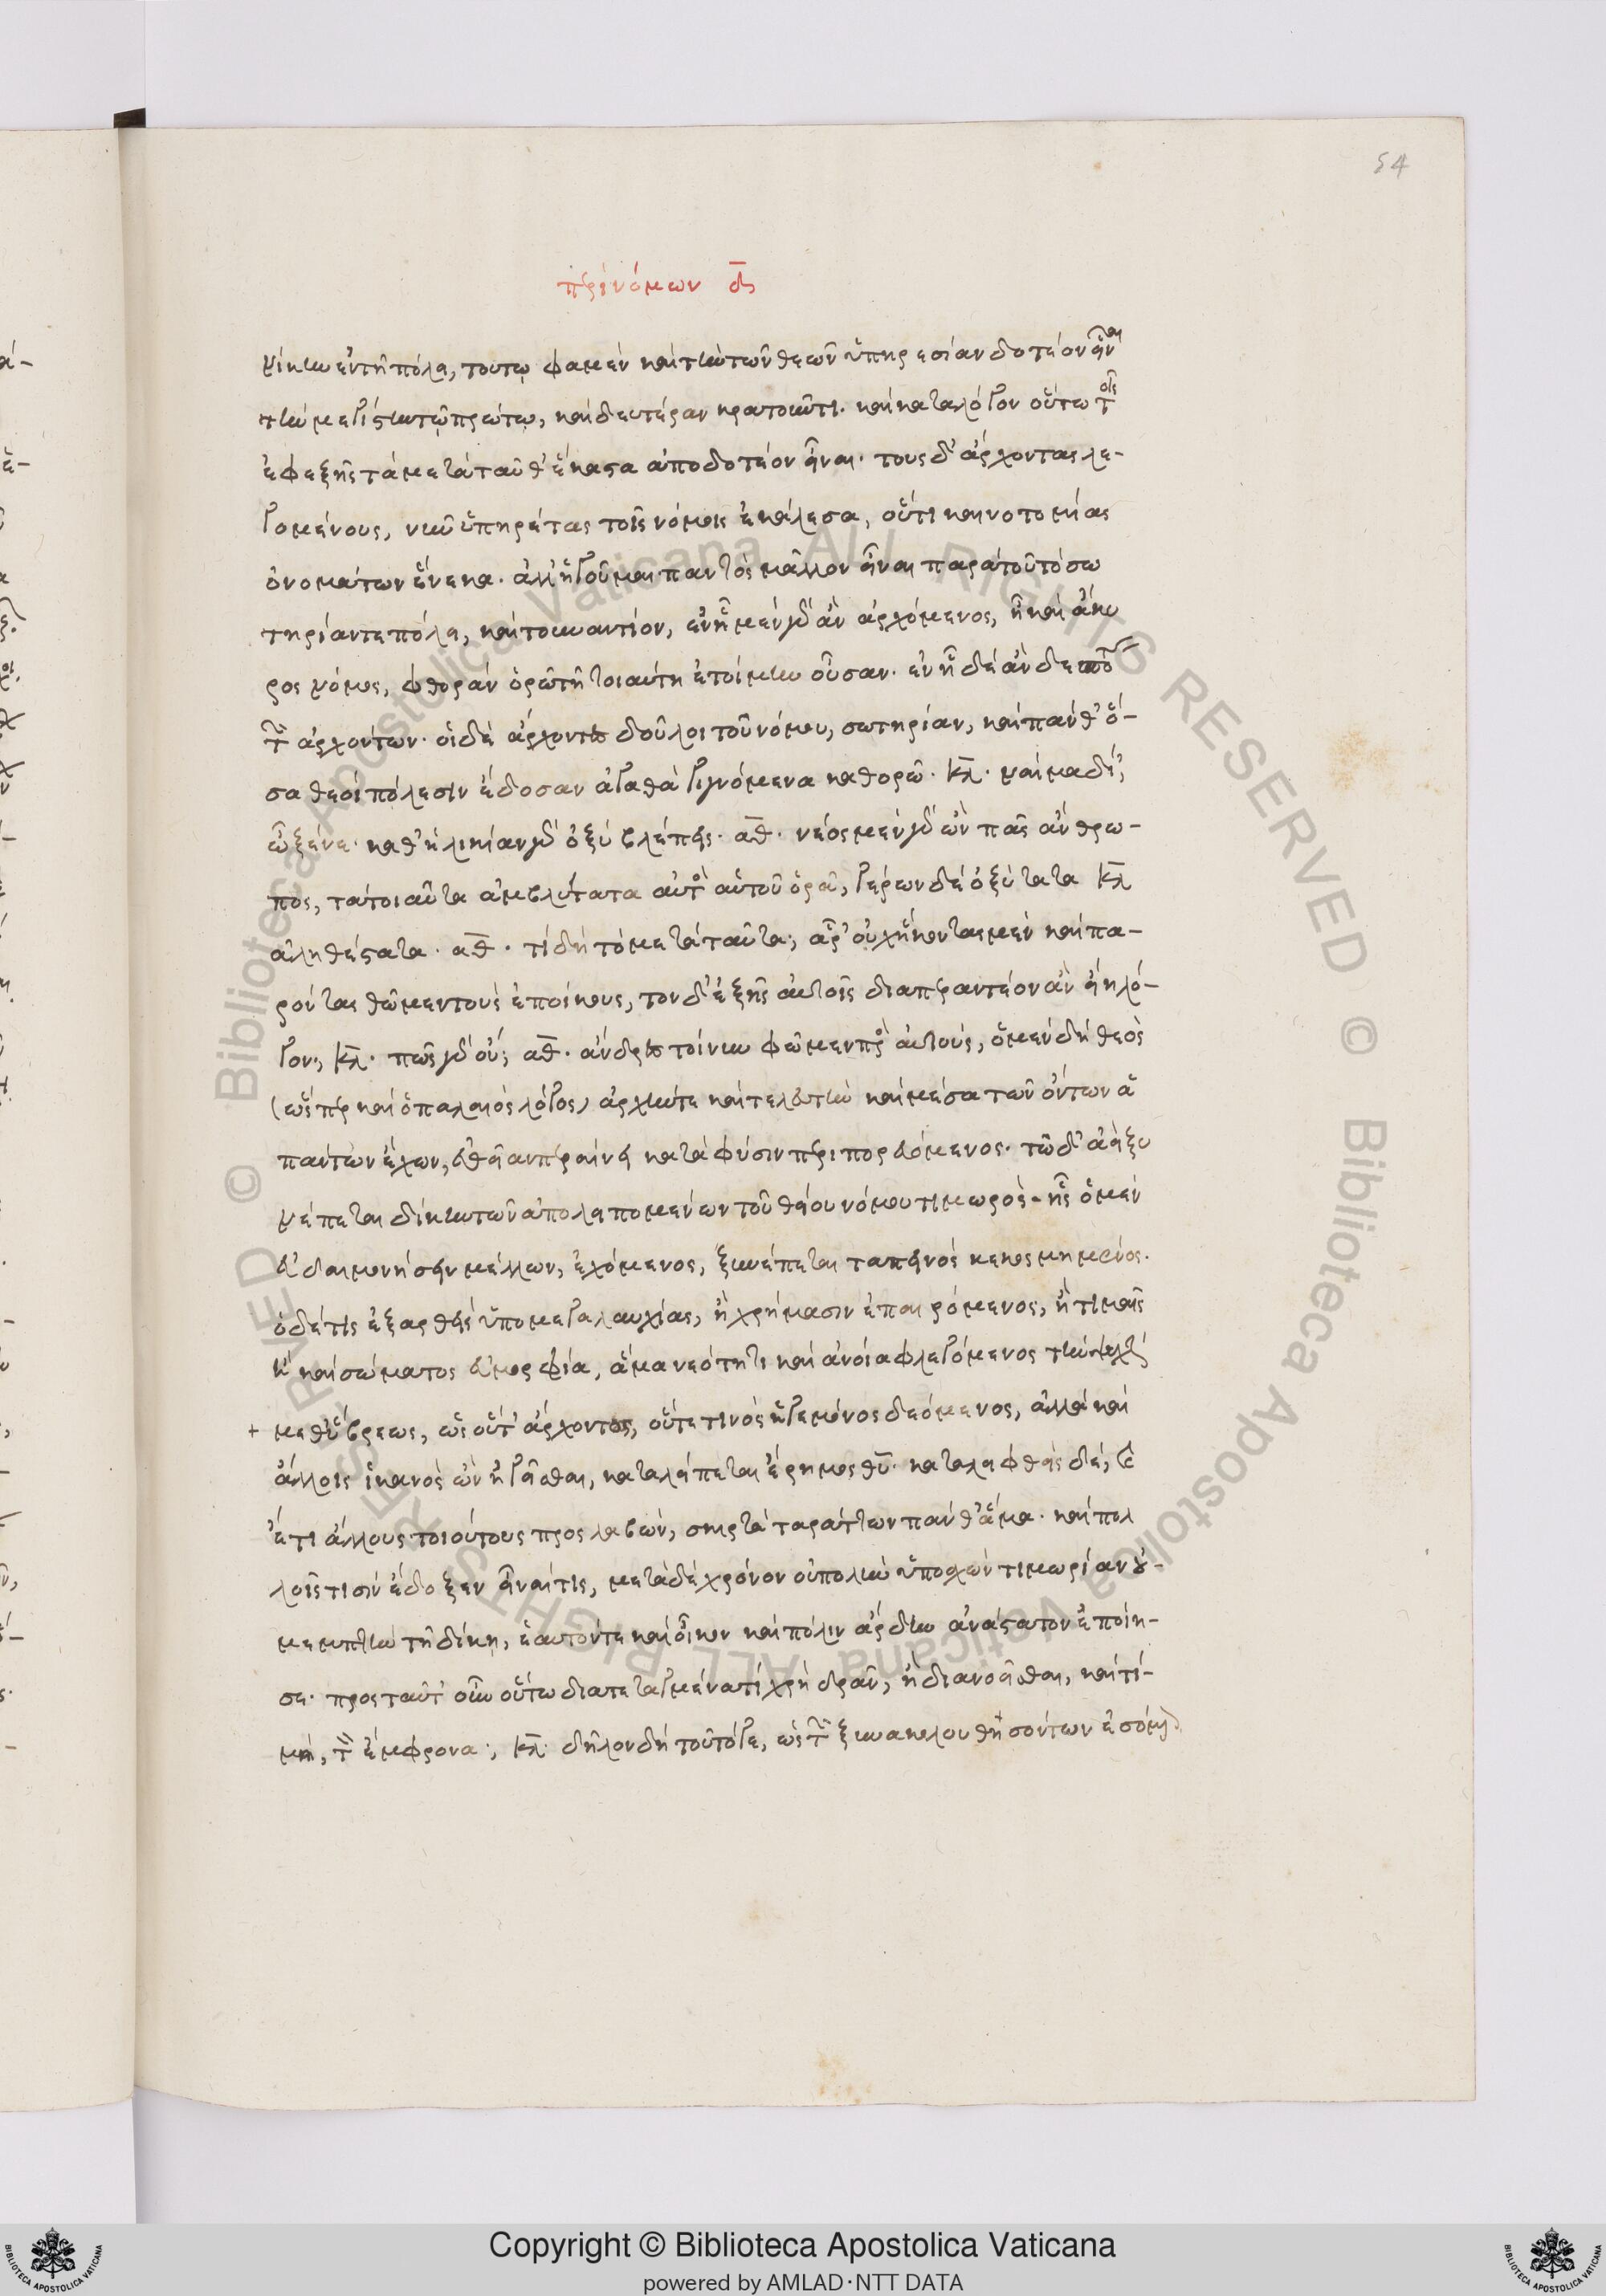 54
περὶ νόμων δ
νίκην ἐν τῆ πόλει, τούτω φαμὲν καὶ τὴν τῶν θεῶν ὑπηρεσίαν δοτέον εἶναι
τὴν μεγίστην τῷ πρώτῳ, καὶ δευτέραν κρατοῦντι. καὶ κατὰ λόγον οὕτω τοῖς
ἐφεξῆς τὰ μετὰ ταῦθ' ἕκαστα ἀποδοτέον εἶναι. τοὺς δ' ἄρχοντας λε-
γομένους, νῦν ὑπηρέτας τοῖς νόμοις ἐκάλεσα, οὔτι καινοτομίας
ὀνομάτων ἕνεκα. ἀλλ' ἡγοῦμαι παντὸς μᾶλλον εἶναι παρὰ τοῦτο σω
τηρίαν τε πόλει, καὶ τοὐναντίον, ἐν ᾗ μὲν γὰρ ἂν ἀρχόμενος, ᾖ καὶ ἄκυ
ρος νόμος, φθορὰν ὁρῶ τῆ τοιαύτη ἑτοίμην οὖσαν. ἐν ᾗ δὲ ἂν δεσπό
τῶν ἀρχόντων. οἱ δὲ ἄρχοντες δοῦλοι τοῦ νόμου, σωτηρίαν, καὶ πάνθ' ὅ-
σα θεοὶ πόλεσιν ἔδοσαν ἀγαθὰ γιγνόμενα καθορῶ. κλ. ναὶ μὰ δί',
ὦ ξένε. καθ' ἡλικίαν γὰρ ὀξὺ βλέπεις. αθ. νέος μὲν γὰρ ὢν πᾶς ἄνθρω-
πος, τὰ τοιαῦτα ἀμβλύτατα αὐτὸς αὑτοῦ ὁρᾶ, γέρων δὲ ὀξύτατα κλ
ἀληθέστατα. αθ. τί δὴ τὸ μετὰ ταῦτα; ἆρ' οὐχ ἥκοντας μὲν καὶ πα-
ρόντας θῶμεν τοὺς ἐποίκους, τὸν δ' ἑξῆς αὐτοῖς διαπεραντέον ἂν εἴη λό-
γον; κλ. πῶς γὰρ οὔ; αθ. ἄνδρες τοίνυν φῶμεν πρὸς αὐτούς, ὁ μὲν δὴ θεὸς
(ὥσπερ καὶ ὁ παλαιὸς λόγος) ἀρχήν τε καὶ τελευτὴν καὶ μέσα τῶν ὄντων ἁ
πάντων ἔχων, εὐθεῖαν περαίνει κατὰ φύσιν περιπορευόμενος. τῶ δ' ἀεὶ ξυ
νέπεται δίκη τῶν ἀπολειπομένων τοῦ θείου νόμου τιμωρός. ἧς ὁ μὲν
εὐδαιμονήσειν μέλλων, ἐχόμενος, ξυνέπεται ταπεινὸς κεκοσμημένος.
ὁ δέ τις ἐξαρθεὶς ὑπὸ μεγαλαυχίας, ἢ χρήμασιν ἐπαιρόμενος, ἢ τιμαῖς
ἢ καὶ σώματος εὐμορφία, ἅμα νεότητι καὶ ἀνοία φλεγόμενος τὴν ψυχὴν
+ μεθ' ὕβρεως, ὡς οὔτ' ἄρχοντος, οὔτε τινὸς ἡγεμόνος δεόμενος, ἀλλὰ καὶ
ἄλλοις ἱκανὸς ὢν ἡγεῖσθαι, καταλείπεται ἔρημος θυ. καταλειφθεὶς δέ, καὶ
ἔτι ἄλλους τοιούτους προσλαβών, σκιρτᾶ ταράττων πάνθ' ἅμα. καὶ πολ
λοῖς τισὶν ἔδοξεν εἶναί τις, μετὰ δὲ χρόνον οὐ πολὺν ὑποσχὼν τιμωρίαν οὐ-
μεμπτὴν τῆ δίκη, ἑαυτόν τε καὶ οἶκον καὶ πόλιν ἄρδην ἀνάστατον ἐποίη-
σε. πρὸς ταῦτ' οὖν οὕτω διατεταγμένα τί χρὴ δρᾶν, ἢ διανοεῖσθαι, καὶ τί-
μή, τὸν ἔμφρονα; κλ. δῆλον δὴ τοῦτό γε, ὡς τῶν ξυνακολουθησόντων ἐσόμενον
Copyright © Biblioteca Apostolica Vaticana
powered by AMLAD·NTT DATA